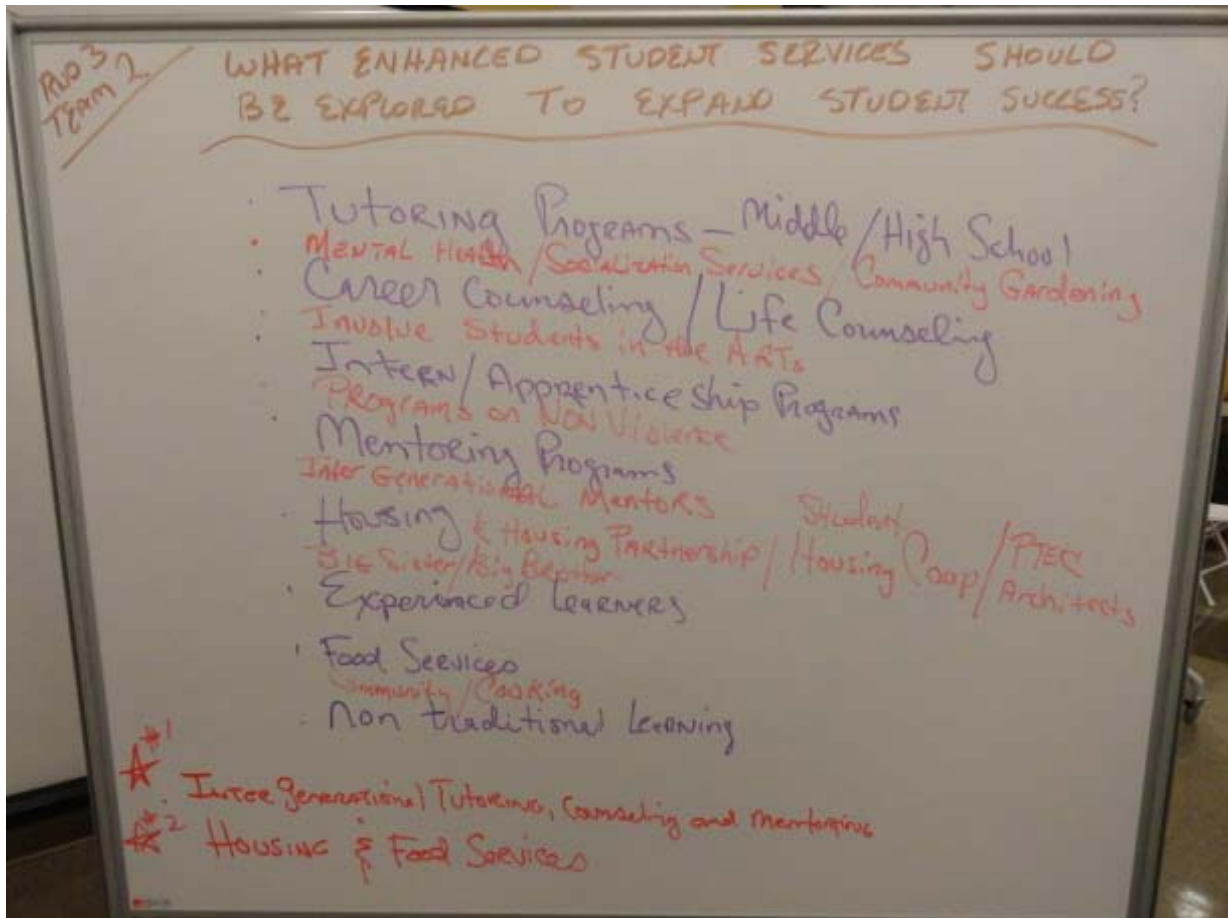 RND 3
TEAM 2
WHAT ENHANCED STUDENT SERVICES SHOULD
BE EXPLORED TO EXPAND STUDENT SUCCESS?
· Tutoring Programs – Middle / High School
· Mental Health / Socialization Services / Community Gardening
· Career Counseling / Life Counseling
Involve Students in the ARTs
· Intern / Apprenticeship Programs
Programs on NON Violence
· Mentoring Programs
Inter Generational Mentors
· Housing & Housing Partnership / Student Housing Coop / PTEC Architects
Big Sister / Big Brother
· Experienced Learners
· Food Services
Community / Cooking
· Non traditional Learning
#1
Inter generational Tutoring, Counseling and Mentoring
#2 Housing & Food Services